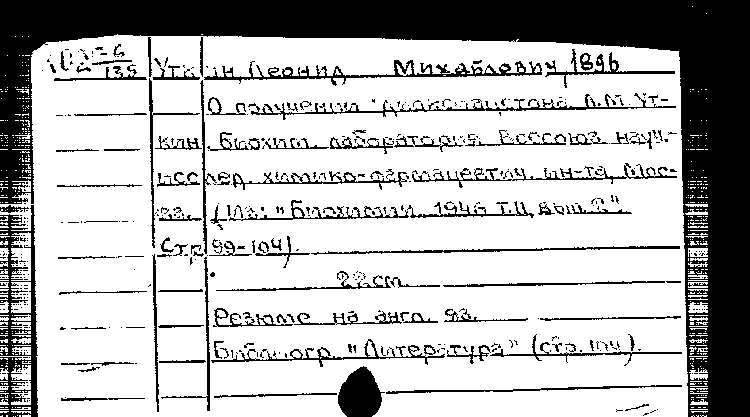 Уткин, Леонид Михайлович, 1896
О получении диоксиацетона Л.М. Ут-
кин. Биохим. лаборатория Всесоюз. науч.-
исслед. химико-фармацевтич. ин-та, Мос-
ква. (Из: "Биохимии. 1946 т.11, вып. 2".
Стр 99-104).
22 см.
Резюме на англ. яз.
Библиогр. "Литература" (стр. 104).